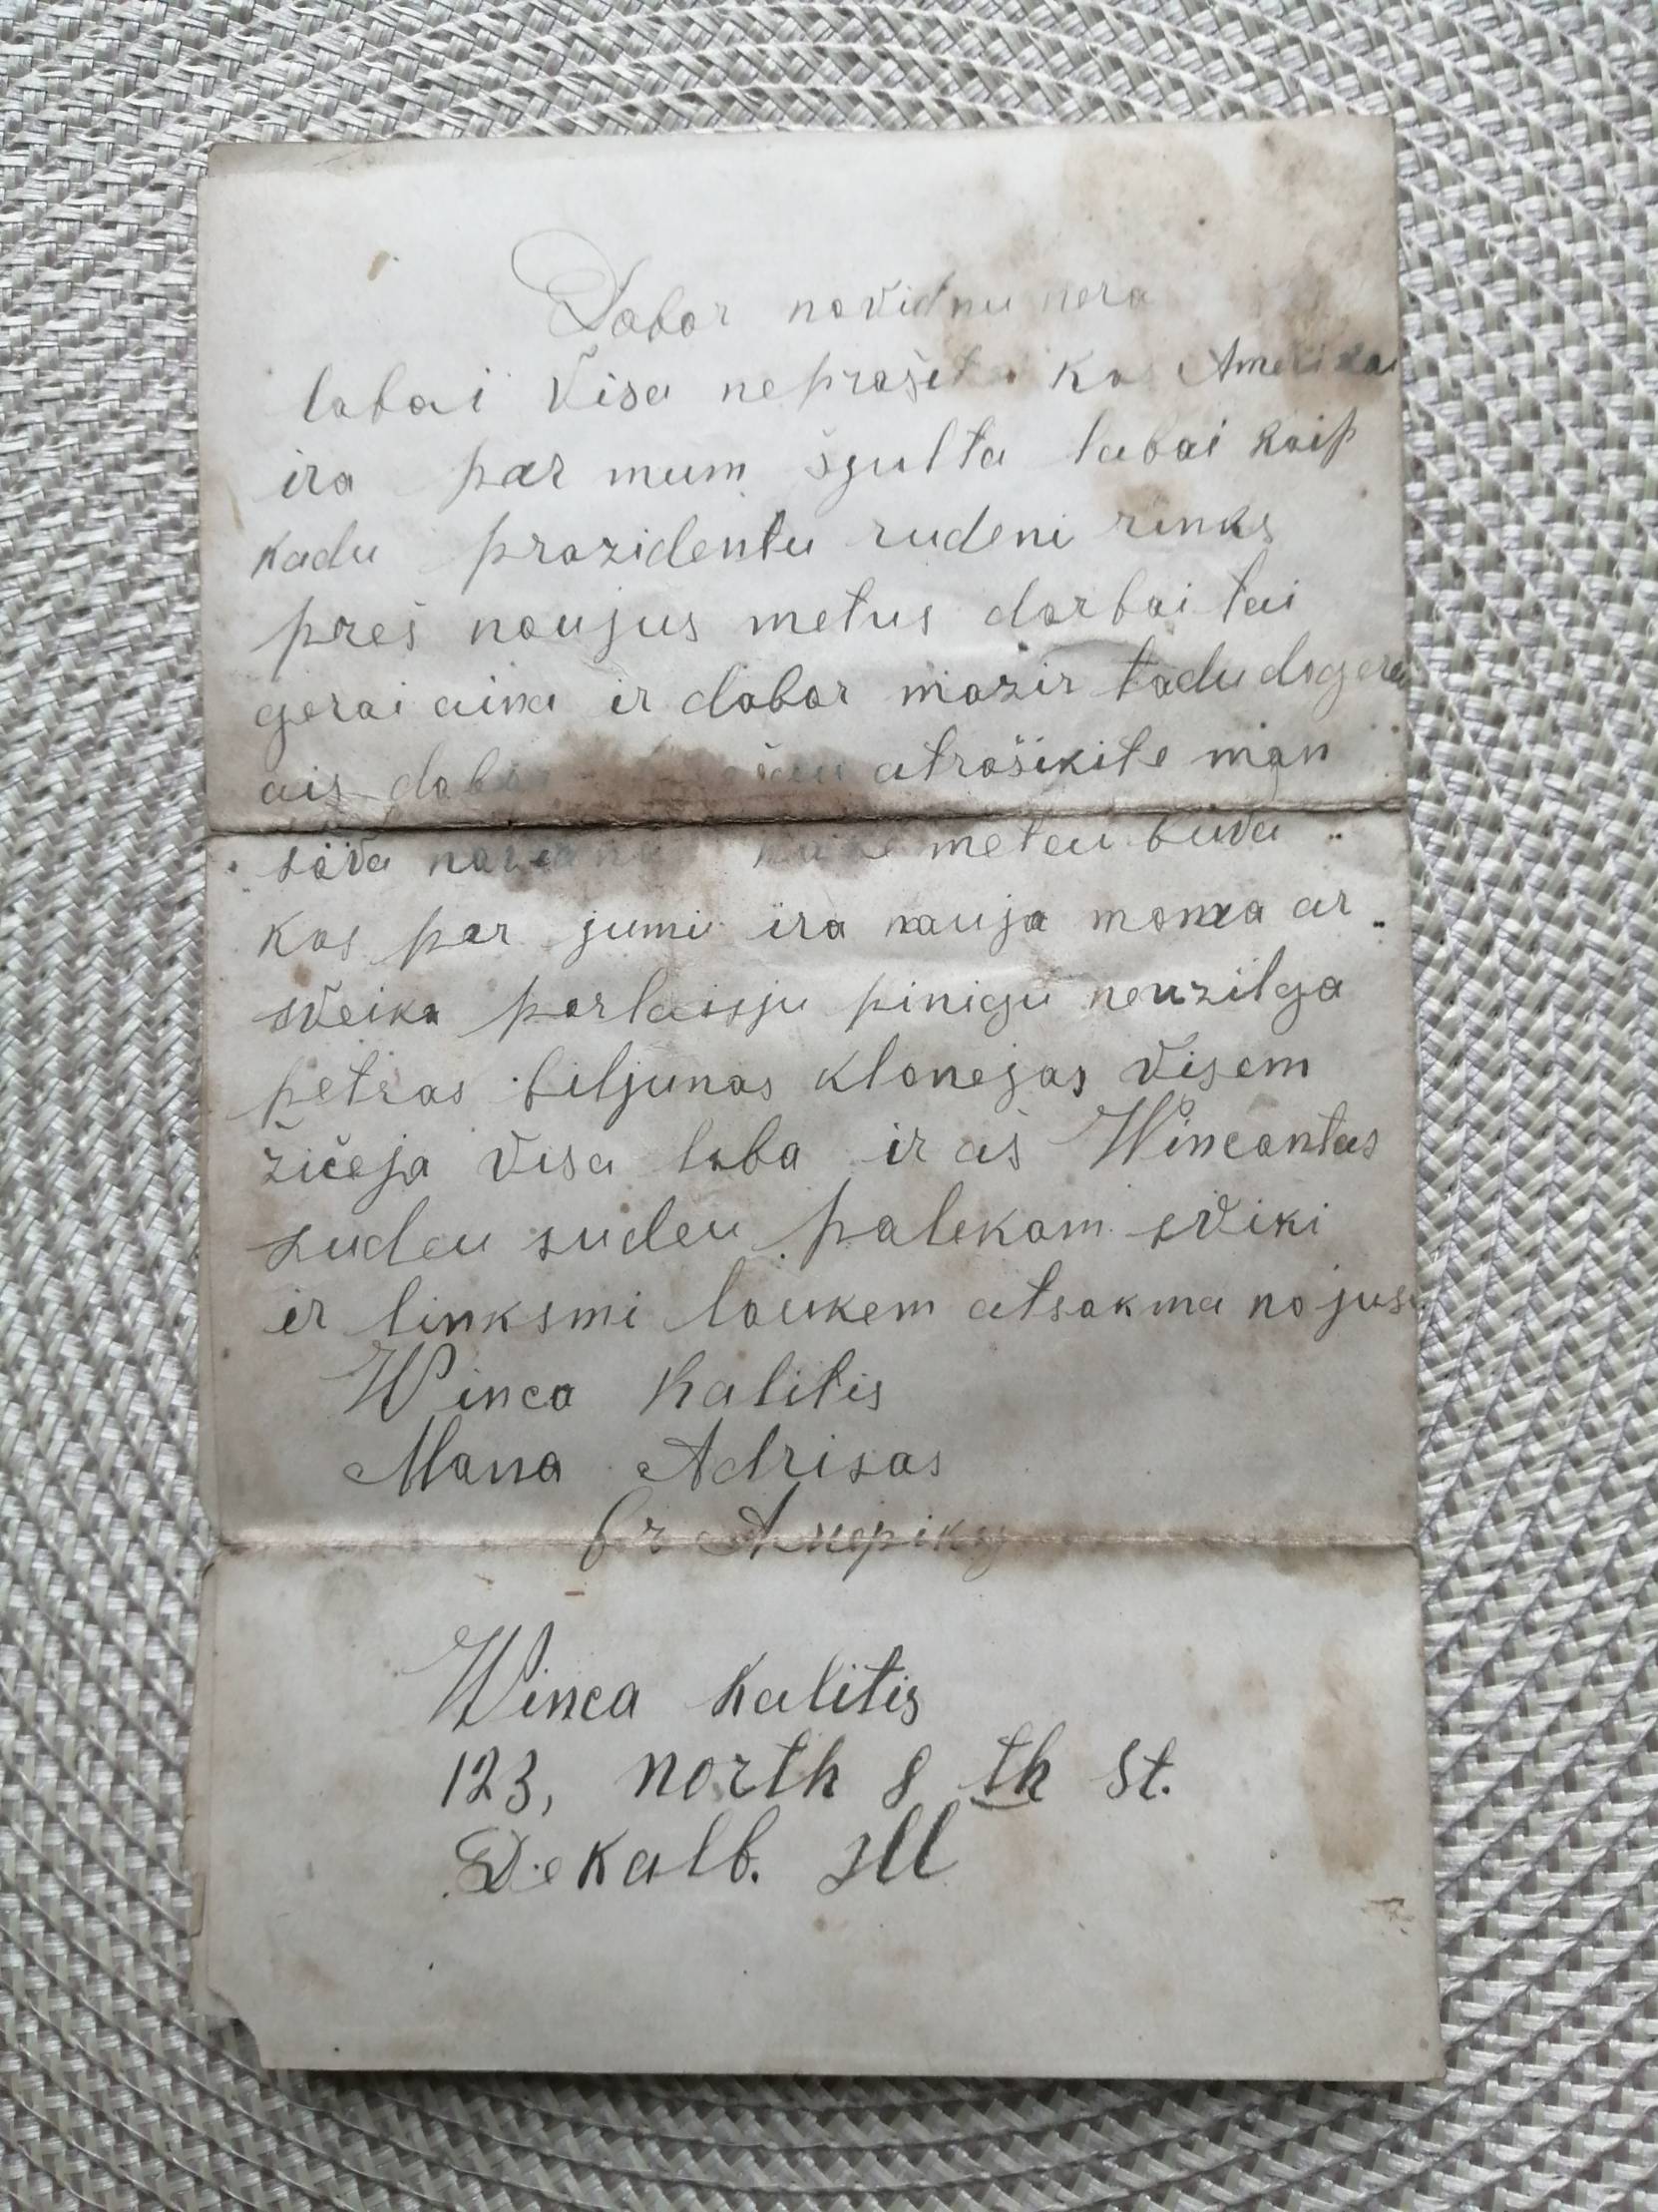 Dabar navienu nera
labai visa neprašit kas Amerikai
ira par mum šgulta labai kaip
kadu prazidentu rudeni rinks
preš naujus metus darbai tai
gerai aina ir dabar mazir tadu dageru
ais dabar atrašikite man
sava kake metau buva
kas par jumi ira nauja mama ar
sveika parlaisju pinigu neuzilga
petras biljunas klanejas visem
žičeja visa laba ir aš Wincantas
sudeu sudeu palekam sviki
ir linksmi laukem atsakma no jus
Winca Kalitis
Mana Adrisas
Winca Kalitis
123, north 8 th St.
DeKalb. Ill